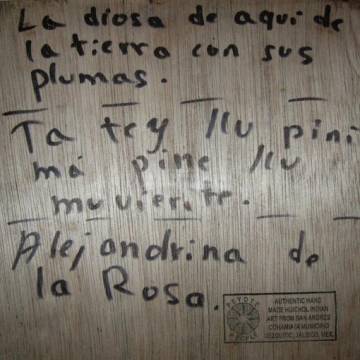 La diosa de aqui de
la tierra con sus
plumas.
Ta tey //u pini
má pine //u
muvierite.
Alejandrina de
la Rosa.
PEYOTE PEOPLE
AUTHENTIC HAND
MADE HUICHOL INDIAN
ART FROM SAN ANDRES
COHAMIATA MUNICIPIO
MEZQUITIC, JALISCO, MEX.